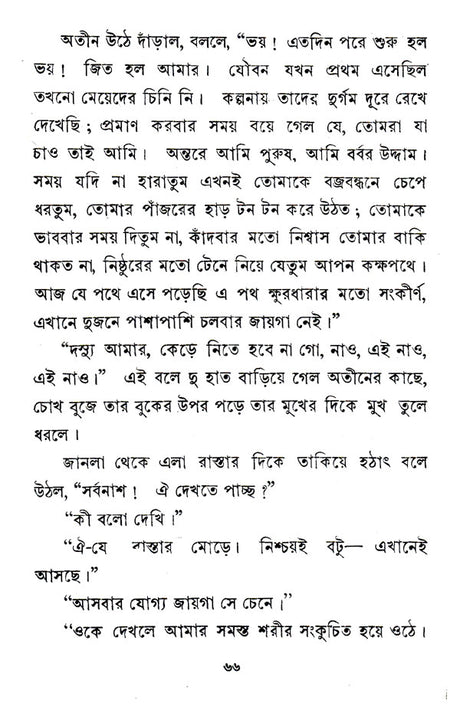 অতীন উঠে দাঁড়াল, বললে, “ভয়! এতদিন পরে শুরু হল
ভয়! জিত হল আমার। যৌবন যখন প্রথম এসেছিল
তখনো মেয়েদের চিনি নি। কল্পনায় তাদের দুর্গম দূরে রেখে
দেখেছি; প্রমাণ করবার সময় বয়ে গেল যে, তোমরা যা
চাও তাই আমি। অন্তরে আমি পুরুষ, আমি বর্বর উদ্দাম।
সময় যদি না হারাতুম এখনই তোমাকে বজ্রবন্ধনে চেপে
ধরতুম, তোমার পাঁজরের হাড় টন টন করে উঠত; তোমাকে
ভাববার সময় দিতুম না, কাঁদবার মতো নিশ্বাস তোমার বাকি
থাকত না, নিষ্ঠুরের মতো টেনে নিয়ে যেতুম আপন কক্ষপথে।
আজ যে পথে এসে পড়েছি এ পথ ক্ষুরধারার মতো সংকীর্ণ,
এখানে দুজনে পাশাপাশি চলবার জায়গা নেই।”
“দস্যু আমার, কেড়ে নিতে হবে না গো, নাও, এই নাও,
এই নাও।” এই বলে দু হাত বাড়িয়ে গেল অতীনের কাছে,
চোখ বুজে তার বুকের উপর পড়ে তার মুখের দিকে মুখ তুলে
ধরলে।
জানলা থেকে এলা রাস্তার দিকে তাকিয়ে হঠাৎ বলে
উঠল, “সর্বনাশ! ঐ দেখতে পাচ্ছ?”
“কী বলো দেখি।”
“ঐ-যে রাস্তার মোড়ে। নিশ্চয়ই বটু— এখানেই
আসছে।”
“আসবার যোগ্য জায়গা সে চেনে।”
“ওকে দেখলে আমার সমস্ত শরীর সংকুচিত হয়ে ওঠে।
৬৬